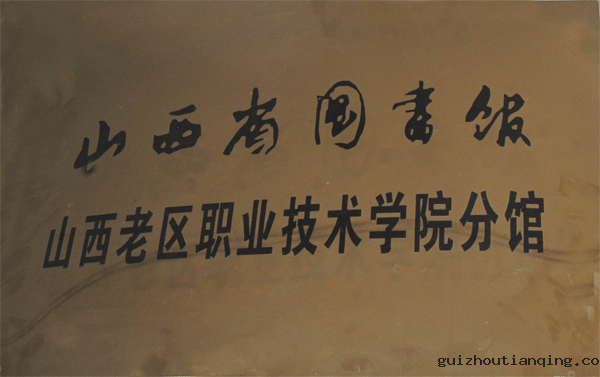 山西省圖書館
山西老区职业技术学院分馆
guizhoutianqing.co